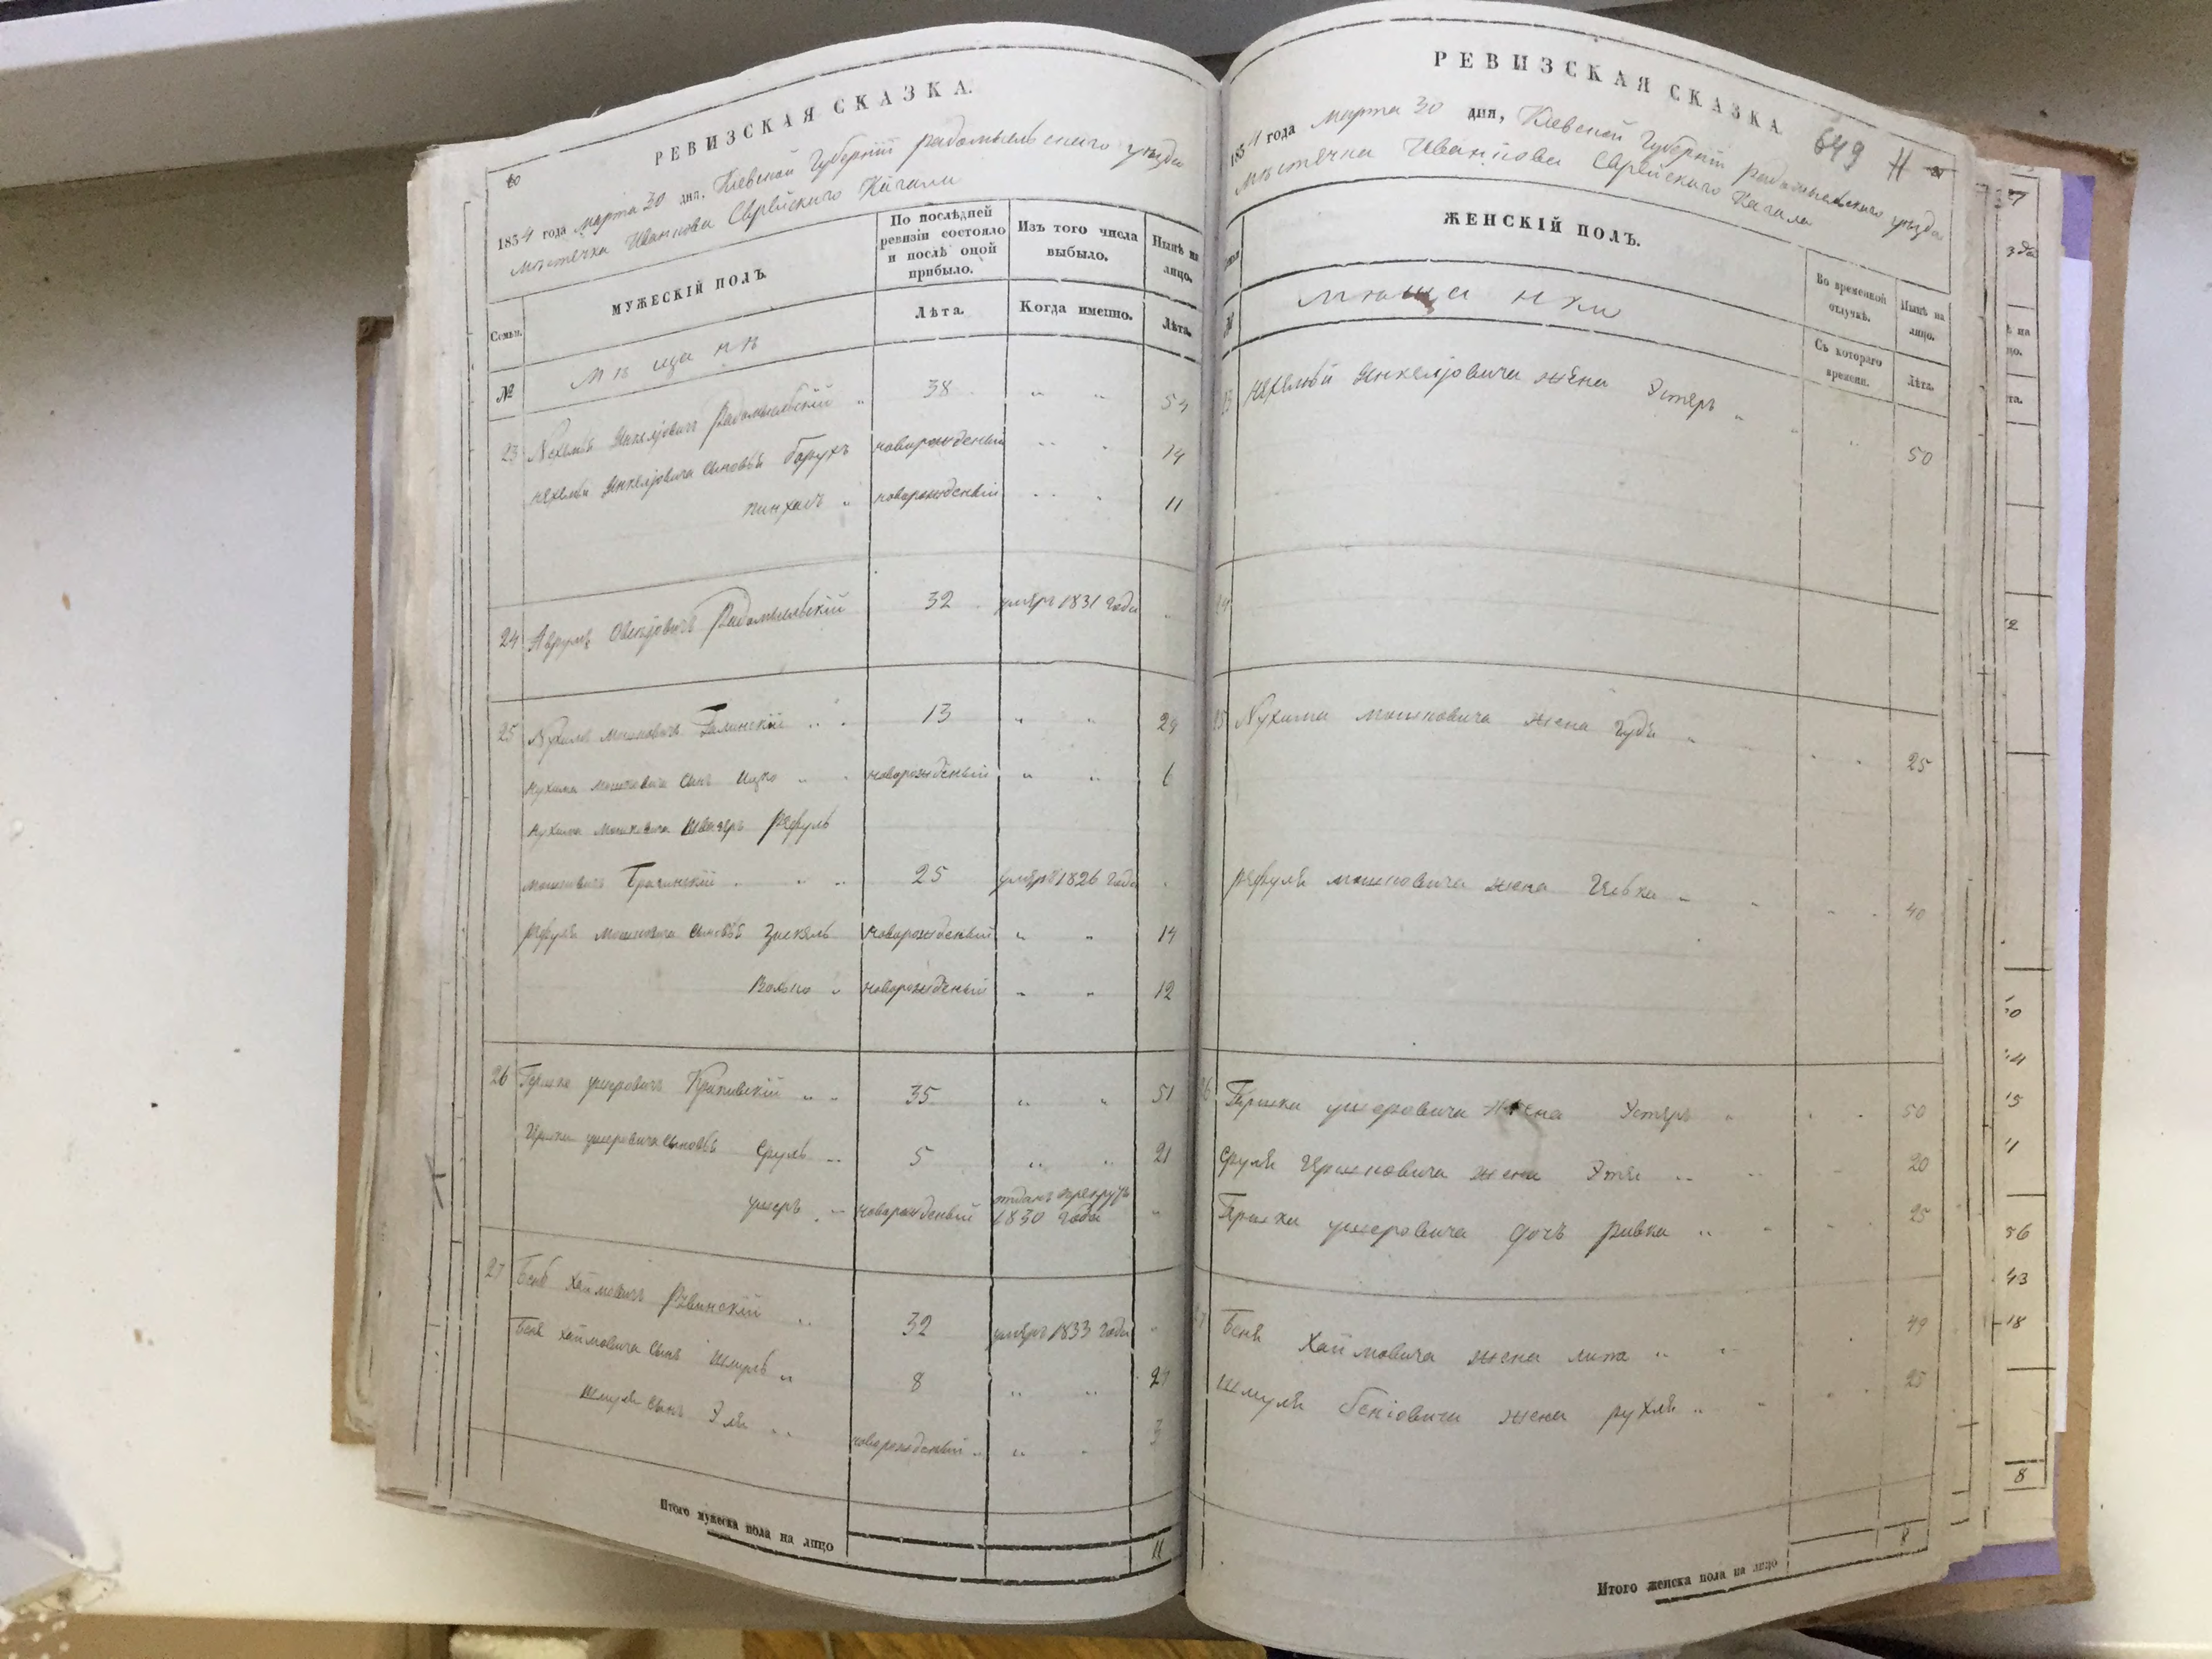 РЕВИЗСКАЯ СКАЗКА.
60
1834 года марта 30 дня, Кіевской Губерніи радомысльскаго уѣзда
мѣстечка Иванкова Еврейскаго Кагала
Семьи.
МУЖЕСКІЙ ПОЛЪ.
По послѣдней ревизіи состояло и послѣ оной прибыло.
Изъ того числа выбыло.
Нынѣ на лицо.
№
Мѣщанѣ
Лѣта.
Когда именно.
Лѣта.
23 Нехемья Янкелјовичъ Радомысльскій 38 " " 54
Нехемьи Янкелјовича сыновья Борухъ новорожденый " " 14
Пинхасъ " новорожденый " " 11
24 Аврумъ Радомысльскій 32 умеръ 1831 года
25 Нухимъ Мошковичъ 13 " " 29
Нухима Мошковича сынъ Ицко новорожденый " " 6
Нухима Мошковича Швагеръ Рефуль
Мошковичъ 25 умеръ 1826 года
Рефуля Мошковича сыновья новорожденый " " 14
Волько " новорожденый " " 12
26 Гершко Ушеровичъ 35 " " 51
Гершка Ушеровича сыновья Сруль 5 " " 21
Ушеръ новорожденый отданъ врекрутъ 1830 года "
27 Бень Хаймовичъ Ровинскій 32 умеръ 1833 года "
Беня Хаймовича сынъ Шмуль " 8 " " 24
Шмуля сынъ Эля новорожденый " " 3
Итого мужеска пола на лицо 11
РЕВИЗСКАЯ СКАЗКА
649
1834 года марта 30 дня, Кіевской Губерніи радомысльскаго уѣзда
мѣстечка Иванкова Еврейскаго Кагала
Семьи
ЖЕНСКІЙ ПОЛЪ.
Во временной отлучкѣ.
Нынѣ на лицо.
№
Мѣщанки
Съ котораго времени.
Лѣта.
23 Нехемьи Янкелјовича жена Эстеръ " " 50
24
25 Нухима Мошковича жена Гудя " " 25
Рефуля Мошковича жена Цивка " " 40
26 Гершка Ушеровича жена Эстеръ " " 50
Сруля Гершковича жена Этя " " 20
Гершка Ушеровича дочь Ривка " " 25
27 Беня Хаймовича жена " " 49
Шмуля Беніовича жена Рухля " " 25
Итого женска пола на лицо 8